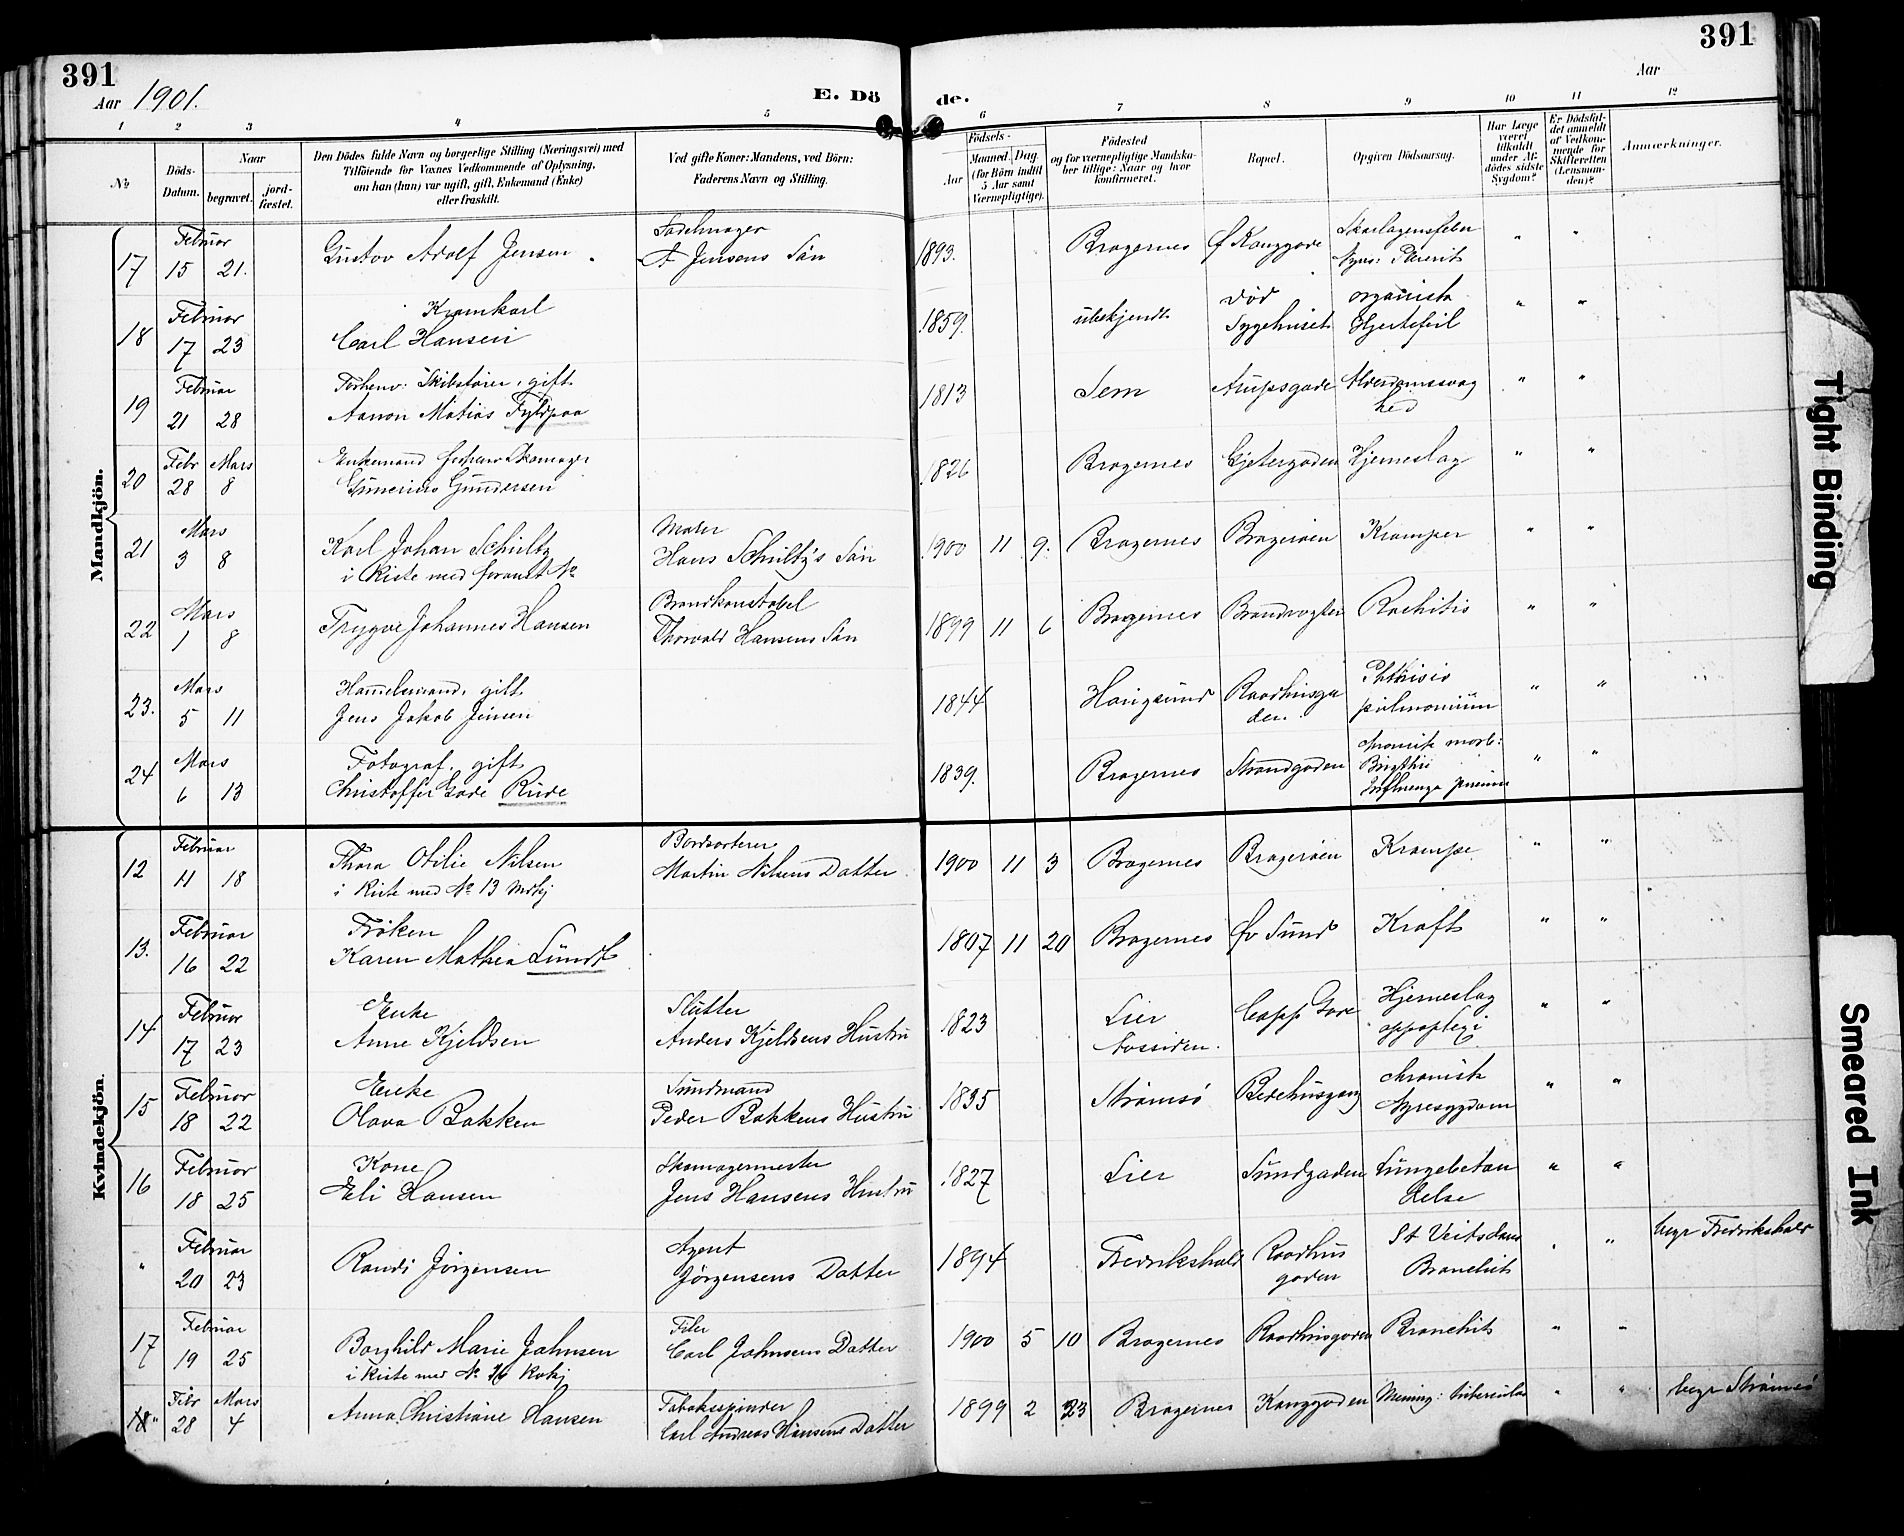 391
391
Aar 1901.
E. Dö de.
Aar
1 2 3 4 5 6 7 8 9 10 11 12
№
Döds-Datum.
Naar
begravet.
jord-fæstet.
Den Dödes fulde Navn og borgerlige Stilling (Næringsvei) med
Tilföiende for Voxnes Vedkommende af Oplysning,
om han (hun) var ugift, gift, Enkemand (Enke)
eller fraskilt.
Ved gifte Koner: Mandens, ved Börn:
Faderens Navn og Stilling.
Födsels-
Aar
Maaned.
Dag.
(for Börn indtil
5 Aar samt
Værnepligtige).
Födested
og for værnepligtige Mandska-
ber tillige: Naar og hvor
konfirmeret.
Bopæl.
Opgiven Dödsaarsag.
Har Læge
været
tilkaldt
under Af-
dödes sidste
Sygdom?
Er Dödsfal-
det anmeldt
af Vedkom-
mende for
Skifteretten
(Lensman-
den)?
Anmærkninger.
Mandkjön.
17 Februar 15 21. Gustav Adolf Jensen Sadelmager A Jensens Søn 1893. Bragernes Ø Konggade Skarlagensfeber " "
18 Februar 17 23 Carl Hansen 1859. ubekjendt død Sygehuset organisk Hjertefeil " "
19 Februar 21 28 Forhenv: gift Aanon Matias Fyldpaa 1813 Sem Arupsgade Alderdomssvag hed " "
20 Febr 28 Mars 8 Enkemand Skomager Gunerius Gundersen 1826 Bragernes Gjetergaden Hjerneslag " "
21 Mars 3 8 Karl Johan Schultz i Kiste med Maler Hans Schultz's Søn 1900 11 9. Bragernes Bragerøen Kramper " "
22 Mars 1 8 Trygve Johannes Hansen Brandkonstabel Thorvald Hansens Søn 1899 11 6 Bragernes Rachitis " "
23. Mars 5 11 gift Jens Jakob Jensen 1844 Haugsund Raadhusga den. Phthisis pulmonum " "
24 Mars 6 13 Fotograf, gift Christoffer Gade Rude 1839. Bragernes Strandgaden chronisk morb: Brigthii Influenza pneum " "
Kvindekjön.
12 Februar 11 18 Thora Otilie Nilsen i Kiste med № 13 Mdkj Bordsorterer Martin Nilsens Datter 1900 11 3 Bragernes Bragerøen Krampe " "
13. Februar 16 22 Frøken Karen Mathea Lundt 1807 11 20 Bragernes Øv Sund Kræft " "
14 Februar 17 23 Enke Anne Kjeldsen Slutter Anders Kjeldsens Hustru 1823 Lier Capp. Gade Hjerneslag appoplexi " "
15 Februar 18 22 Enke Olava Bakken Sundmand Peder Bakkens Hustru 1835 Strømsø Bedehusgang chronisk Nyresygdom " "
16 Februar 18 25 Kone Eli Hansen Skomagermester Jens Hansens Hustru 1827 Lier Sundgaden Lungebetæn delse " "
" Februar 20 23 Randi Jørgensen Agent Jørgensens Datter 1894 Fredrikshald Raadhus gaden St Veitsdans Bronchit " " begr Fredrikshald
17 Februar 19 25 Borghild Marie Johnsen i Kiste med № 16 Kvkj Filer Carl Johnsens Datter 1900 5 10 Bragernes Raadhusgaden Bronchit " "
Febr 28 Mars 4 Anna Christiane Hansen Tobaksspinder Carl Andreas Hansens Datter 1899 2 23 Bragernes Konggaden Mening: tuberculos " " begr Strømsø
Tight Binding
Smeared Ink